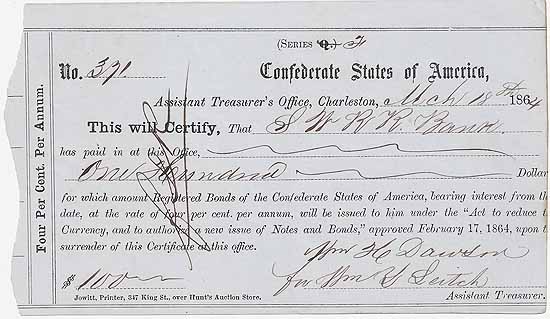 (SERIES Q. F
No. 371. Confederate States of America,
Assistant Treasurer's Office, Charleston, Mch 18th 1864
This will Certify, That S W R R Bank
has paid in at this Office,
One Hundred Dollar
for which amount Registered Bonds of the Confederate States of America, bearing interest from th
date, at the rate of four per cent. per annum, will be issued to him under the "Act to reduce t
Currency, and to authorize a new issue of Notes and Bonds," approved February 17, 1864, upon t
surrender of this Certificate at this office.
Wm H Dawson
$ 100 for Wm Y Leitch
Jowitt, Printer, 347 King St., over Hunt's Auction Store. Assistant Treasurer.
Four Per Cent. Per Annum.